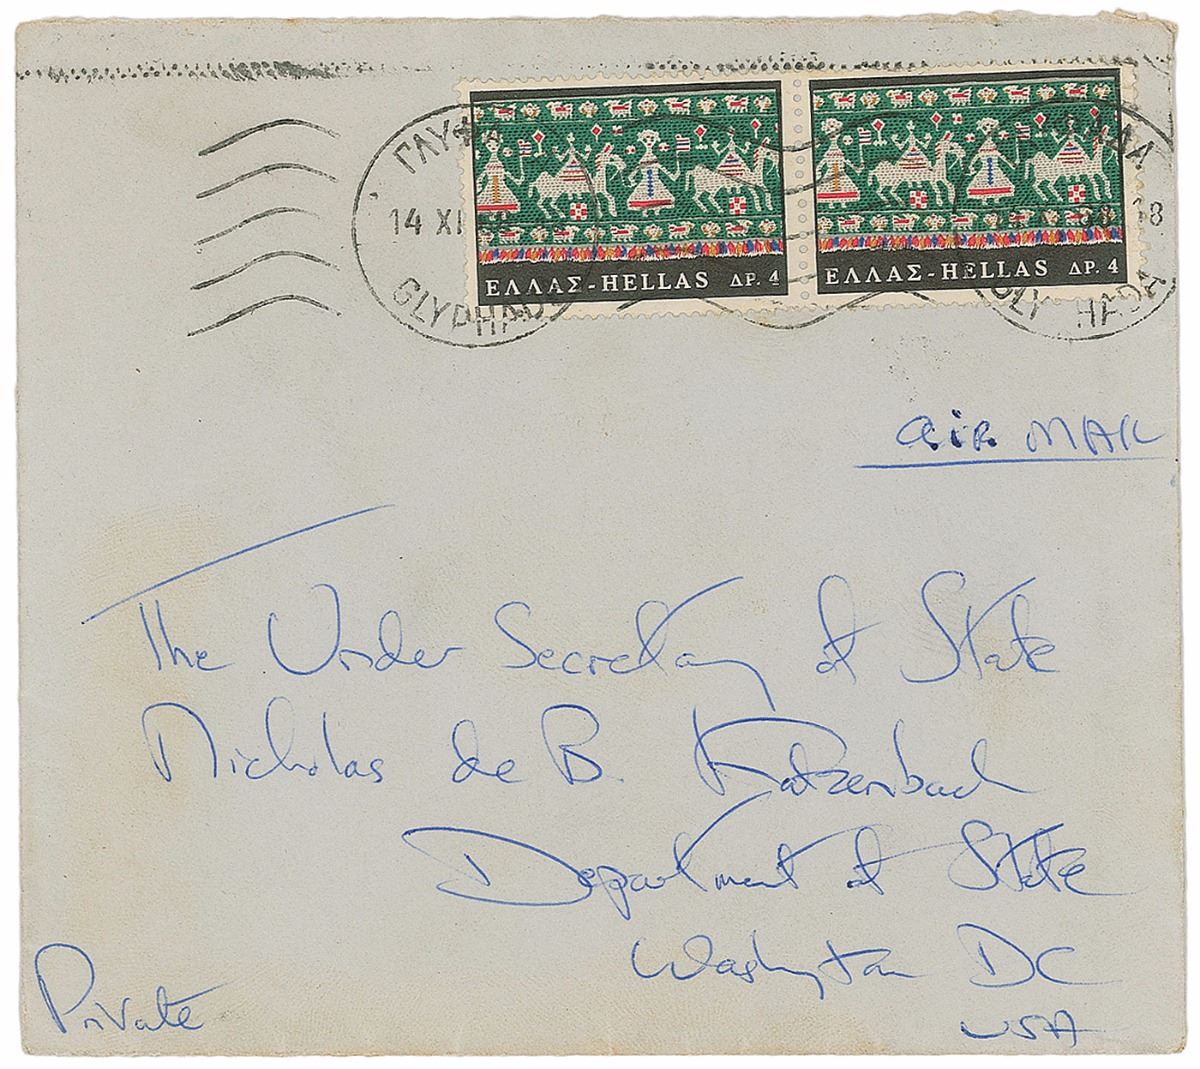 ΓΛΥΦ
14 XI
GLYPHAD
ΕΛΛΑΣ-HELLAS ΔΡ. 4
ΕΛΛΑΣ-HELLAS ΔΡ. 4
ΔΑ
68
GLY HADA
air MAIL
The Under Secretary of State
Nicholas de B. Katzenbach
Department of State
Washington DC
USA
Private